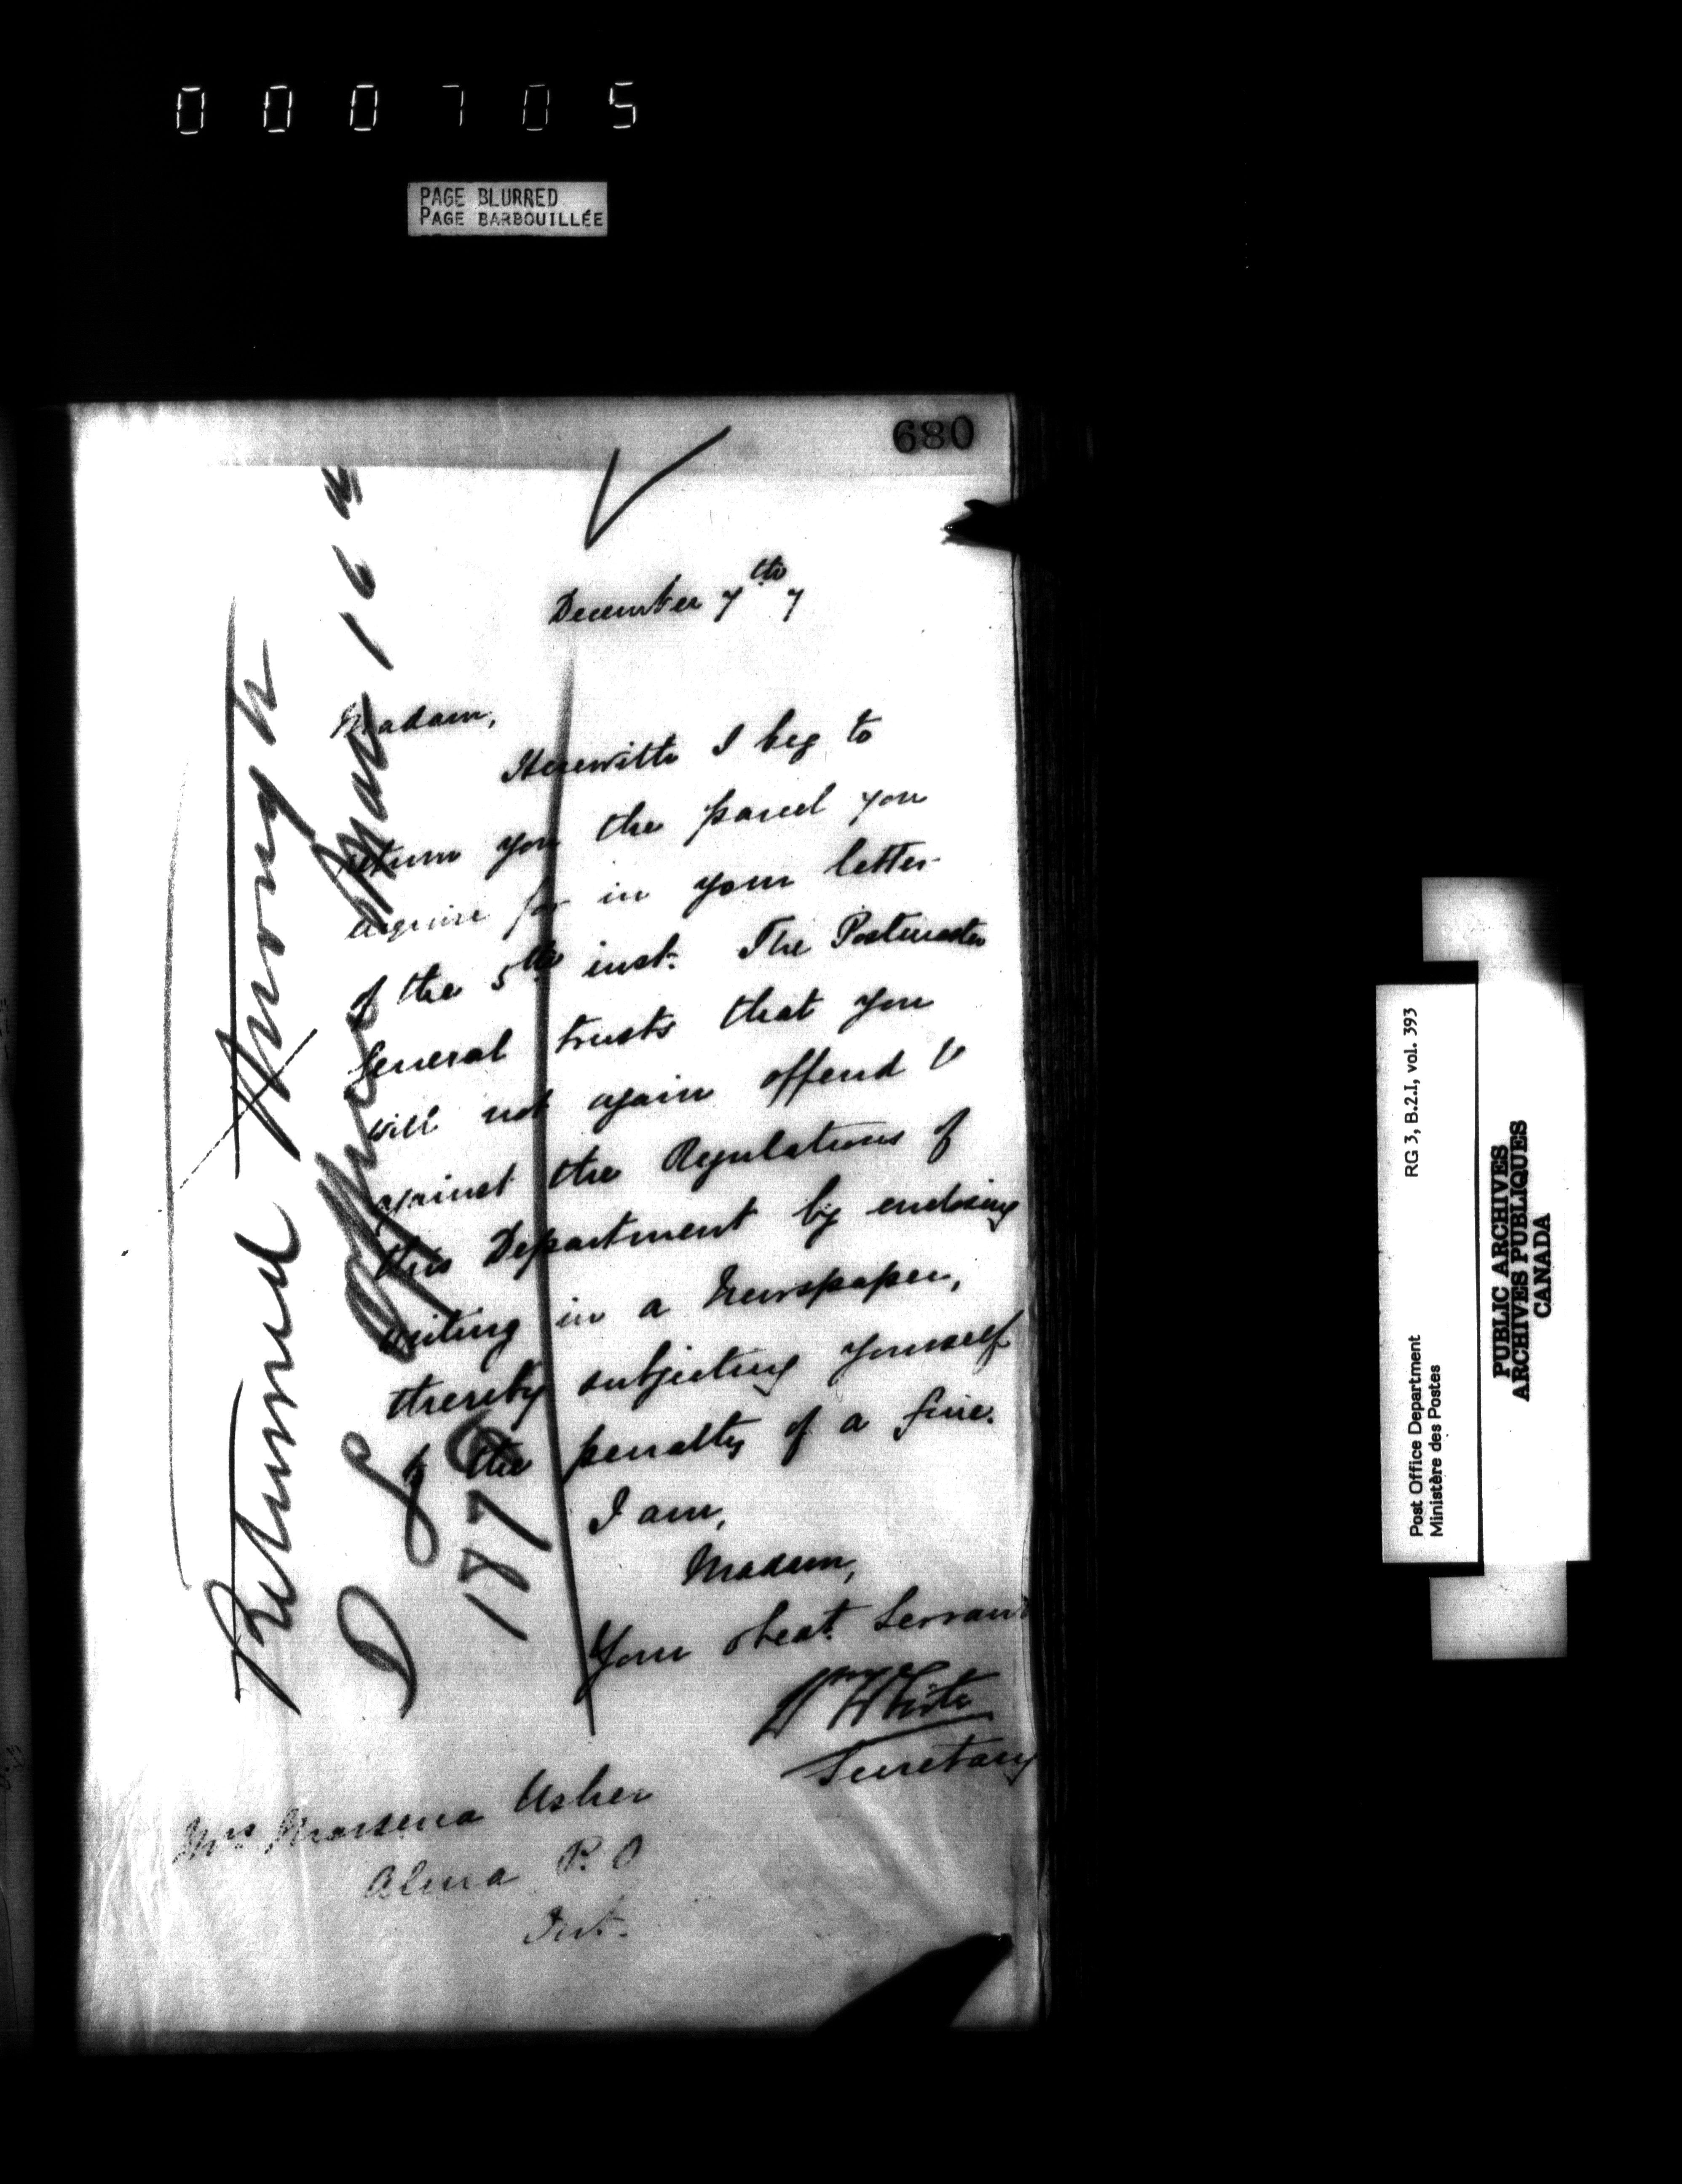 000705
PAGE BLURRED
PAGE BARBOUILLÉE
680
December 7th 7
Madam,
Herewith I beg to
return you the parcel you
enquire for in your letter
of the 5th inst. The Postmaster
General trusts that you
will not again offend
against the Regulations of
this Department by enclosing
writing in a Newspaper,
thereby subjecting yourself
to the penalty of a fine.
I am,
Madam,
Your obedt. Servant
W White
Secretary
Mrs Usher
Alma P.O
Ont.
Returned through
D L Office Mar 16
187
Post Office Department
Ministère des Postes
RG 3, B.2.I, vol. 393
PUBLIC ARCHIVES
ARCHIVES PUBLIQUES
CANADA